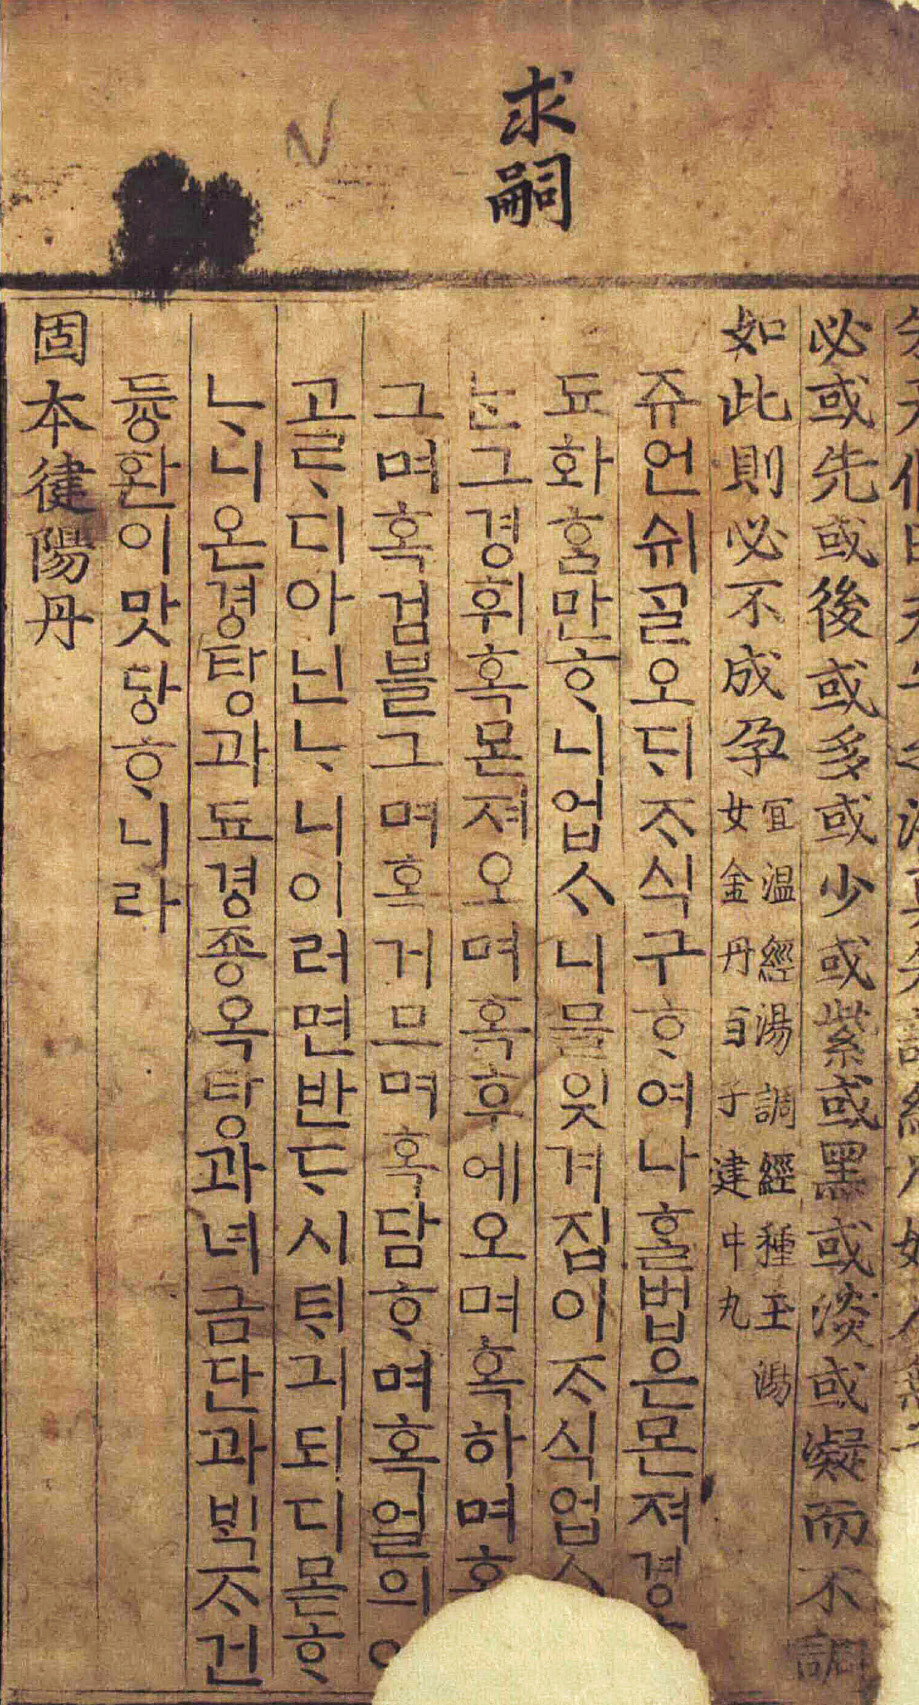 求嗣
必或先或後或多或少或紫或黑或淡或凝而不調
如此則必不成孕
宜温經湯調經種玉湯
女金丹百子建中丸
쥬언쉬ᄀᆞᆯ오ᄃᆡᄌᆞ식구ᄒᆞ여나홀법은몬져경
됴화홈만ᄒᆞ니업ᄉᆞ니믈읫겨집이ᄌᆞ식업
ᄂᆞᆫ그경휘혹몬져오며혹후에오며혹하며
그며혹검블그며혹거므며혹담ᄒᆞ며혹얼의
고ᄅᆞ디아닌ᄂᆞ니이러면반ᄃᆞ시ᄐᆡ긔되디몯ᄒᆞ
ᄂᆞ니온경탕과됴경죵옥탕과녀금단과ᄇᆡᆨᄌᆞ건
듕환이맛당ᄒᆞ니라
固本健陽丹